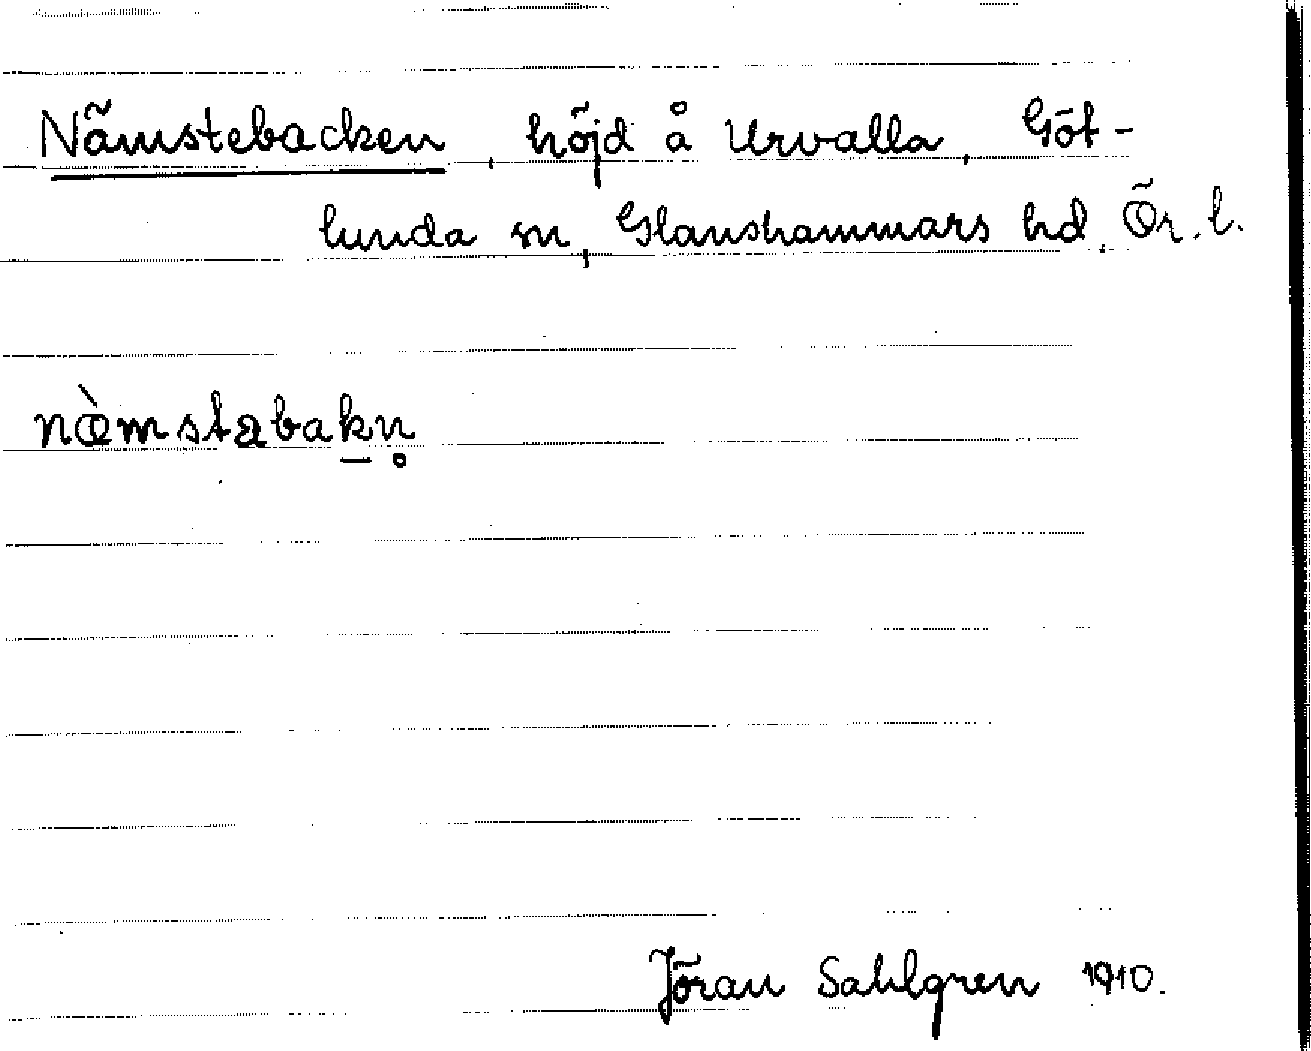 Nämstebacken, höjd å Urvalla, Göt-
lunda sn, Glanshammars hd, Ör. l.
næ̀mstəbak̲n̥
Jöran Sahlgren 1910.